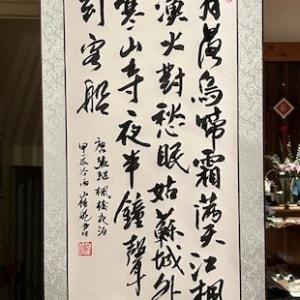 月落烏啼霜滿天江楓
漁火對愁眠姑蘇城外
寒山寺夜半鐘聲
到客船
唐張繼楓橋夜泊
甲辰 山 書